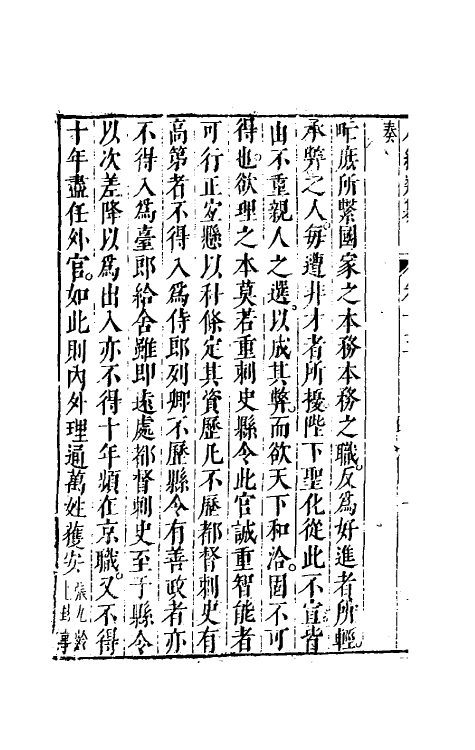 奏
甿庶所繫國家之本務本務之職反為好進者所輕
承弊之人每遭非才者所擾陛下聖化從此不宣皆
由不重親人之選以成其弊而欲天下和洽固不可
得也欲理之本莫若重刺史縣令此官誠重智能者
可行正宜懸以科條定其資歷凡不歷都督刺史有
高第者不得入為侍郎列卿不歷縣令有善政者亦
不得入為臺郎給舍雖即遠處都督刺史至于縣令
以次差降以為出入亦不得十年頻在京職又不得
十年盡任外官如此則內外理通萬姓獲安張九齡
上封事